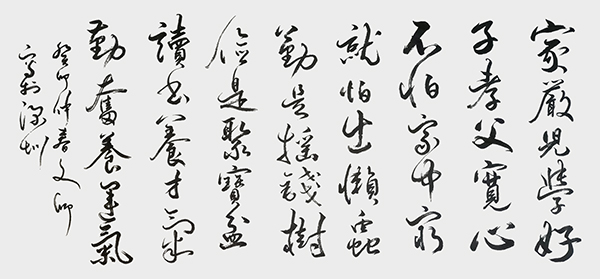 家嚴兒學好
子孝父寬心
不怕家中窮
就怕出懶蟲
勤是搖錢樹
儉是聚寶盆
讀书養才氣
勤奮養運氣
癸卯仲春文卿
寫於深圳